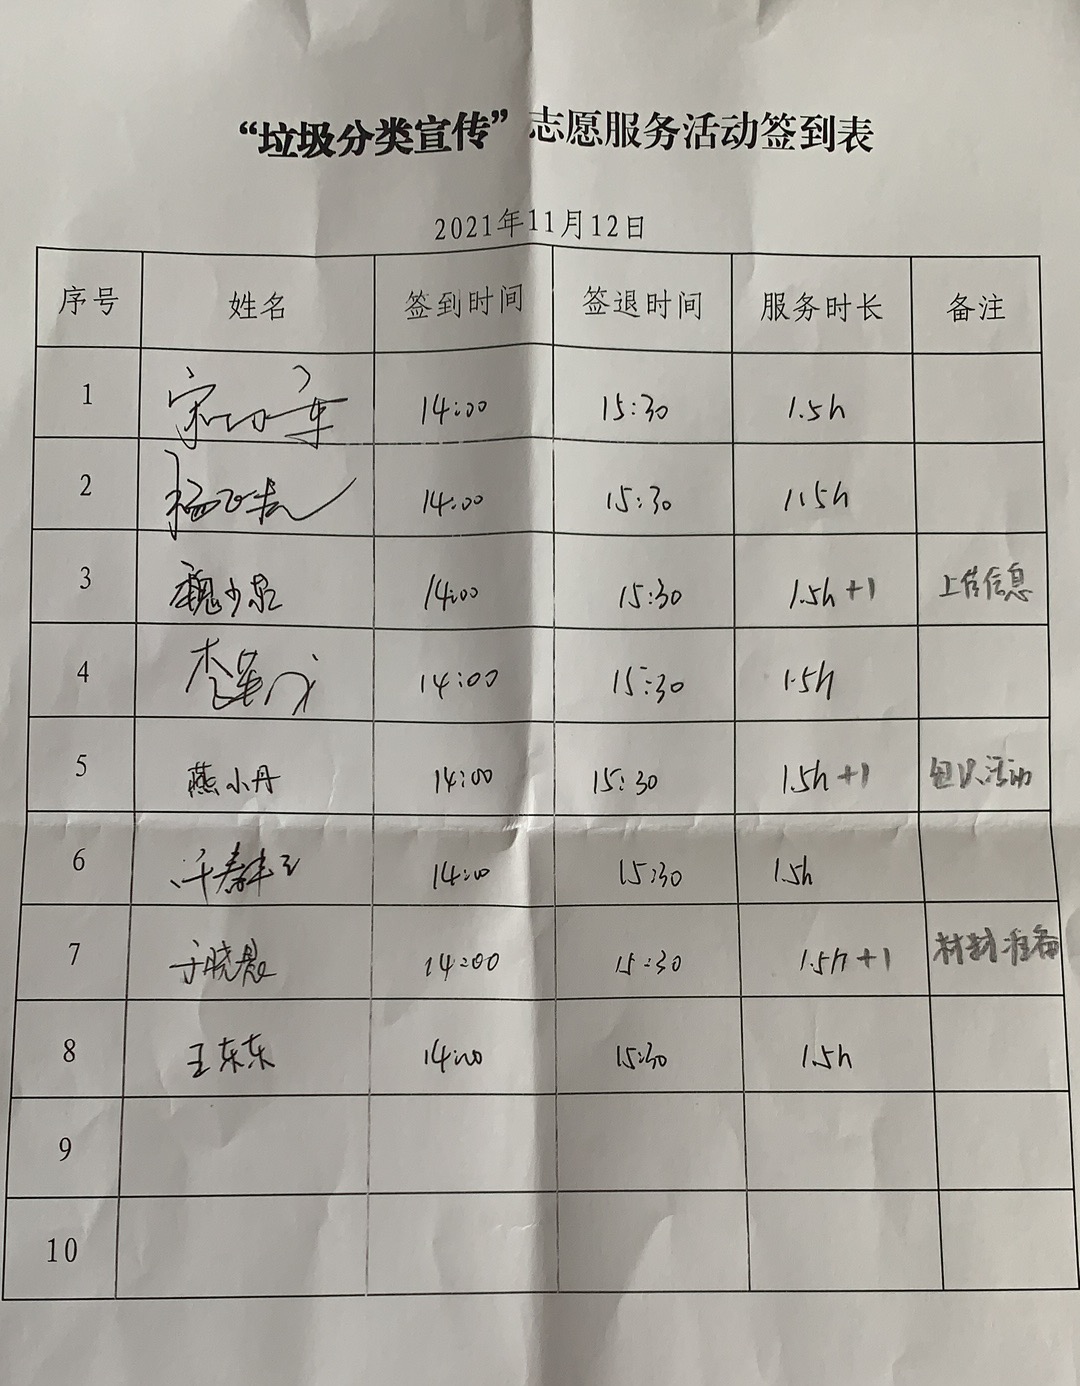 “垃圾分类宣传”志愿服务活动签到表
2021年11月12日
序号 姓名 签到时间 签退时间 服务时长 备注
1 14:00 15:30 1.5h
2 14:00 15:30 1.5h
3 魏少泉 14:00 15:30 1.5h+1 上传信息
4 14:00 15:30 1.5h
5 燕小丹 14:00 15:30 1.5h+1 组织活动
6 14:00 15:30 1.5h
7 于晓晨 14:00 15:30 1.5h+1 材料准备
8 王东东 14:00 15:30 1.5h
9
10